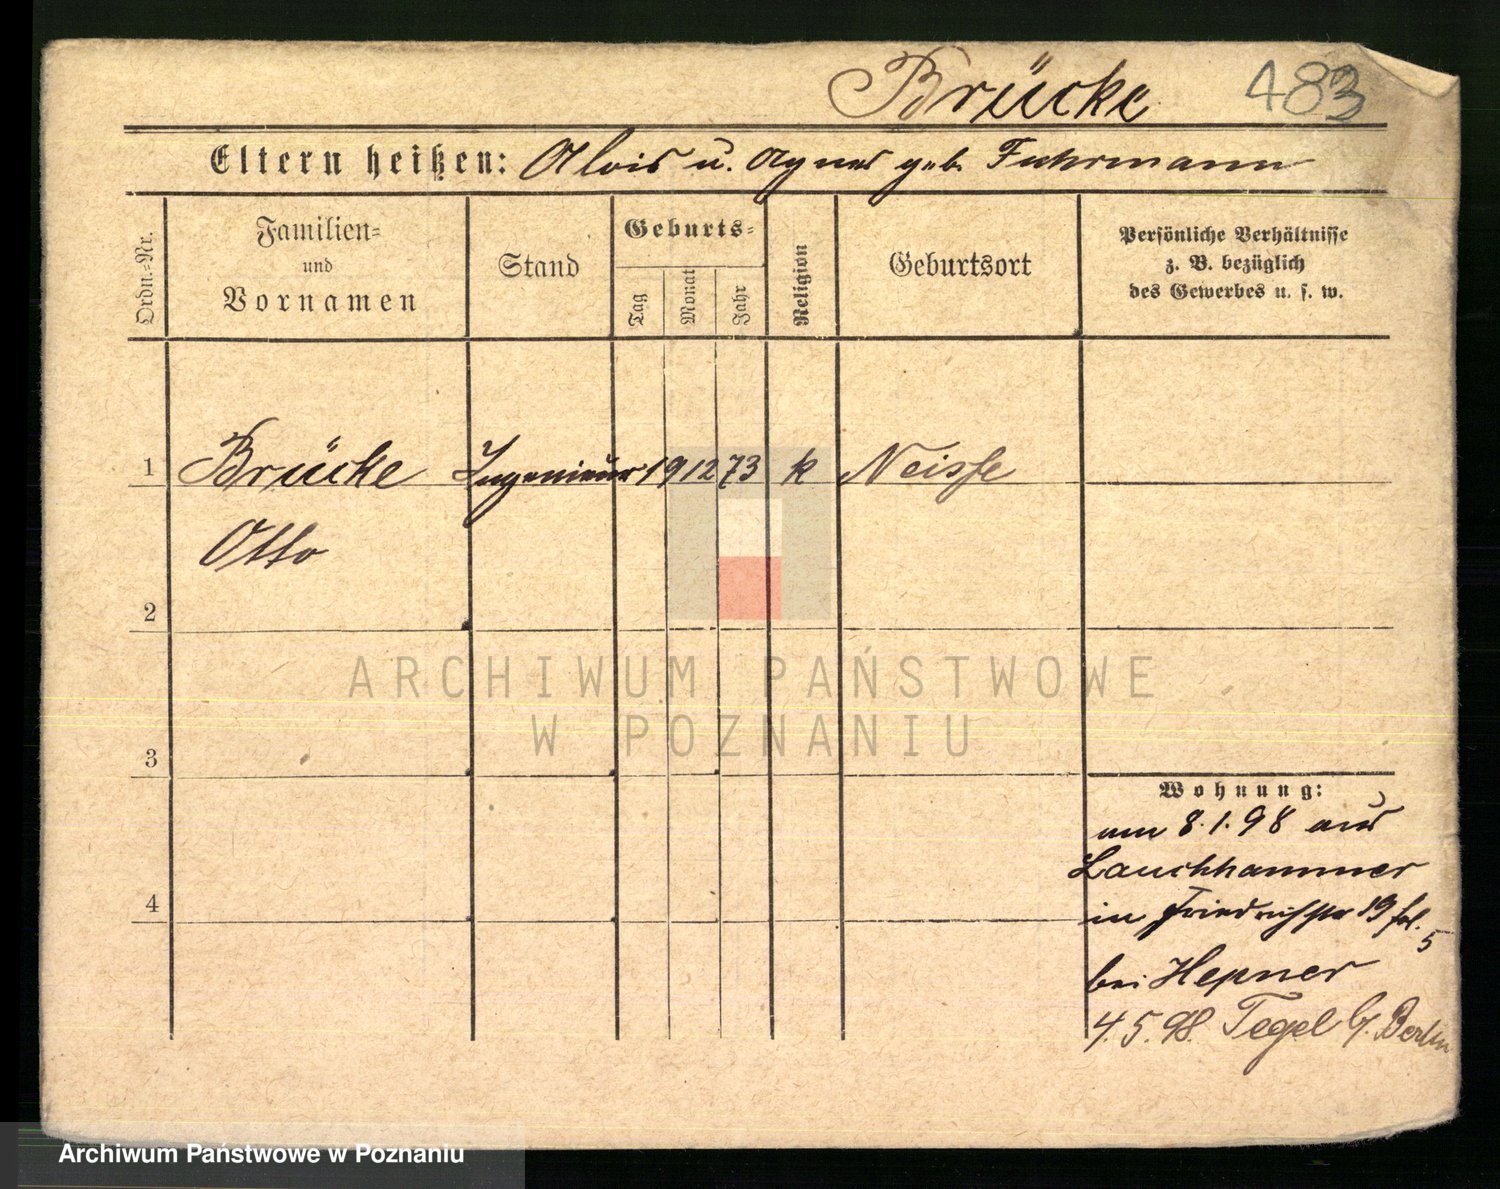 Brücke 483
Eltern heißen: Alois u. Agnes geb. Fuhrmann
Ordn.=Nr.
Familien=
und
Vornamen
Stand
Geburts=
Tag
Monat
Jahr
Religion
Geburtsort
Persönliche Verhältnisse
z. B. bezüglich
des Gewerbes u. s. w.
1 Brücke Ingenieur 19 12 73 k Neisse
Otto
2
ARCHIWUM PAŃSTWOWE
W POZNANIU
3
Wohnung:
am 8.1.98 aus
Lauchhammer
4
in Friedrichstr 19 fol.
5
bei Hepner
4.5.98. Tegel b/. Berlin
Archiwum Państwowe w Poznaniu